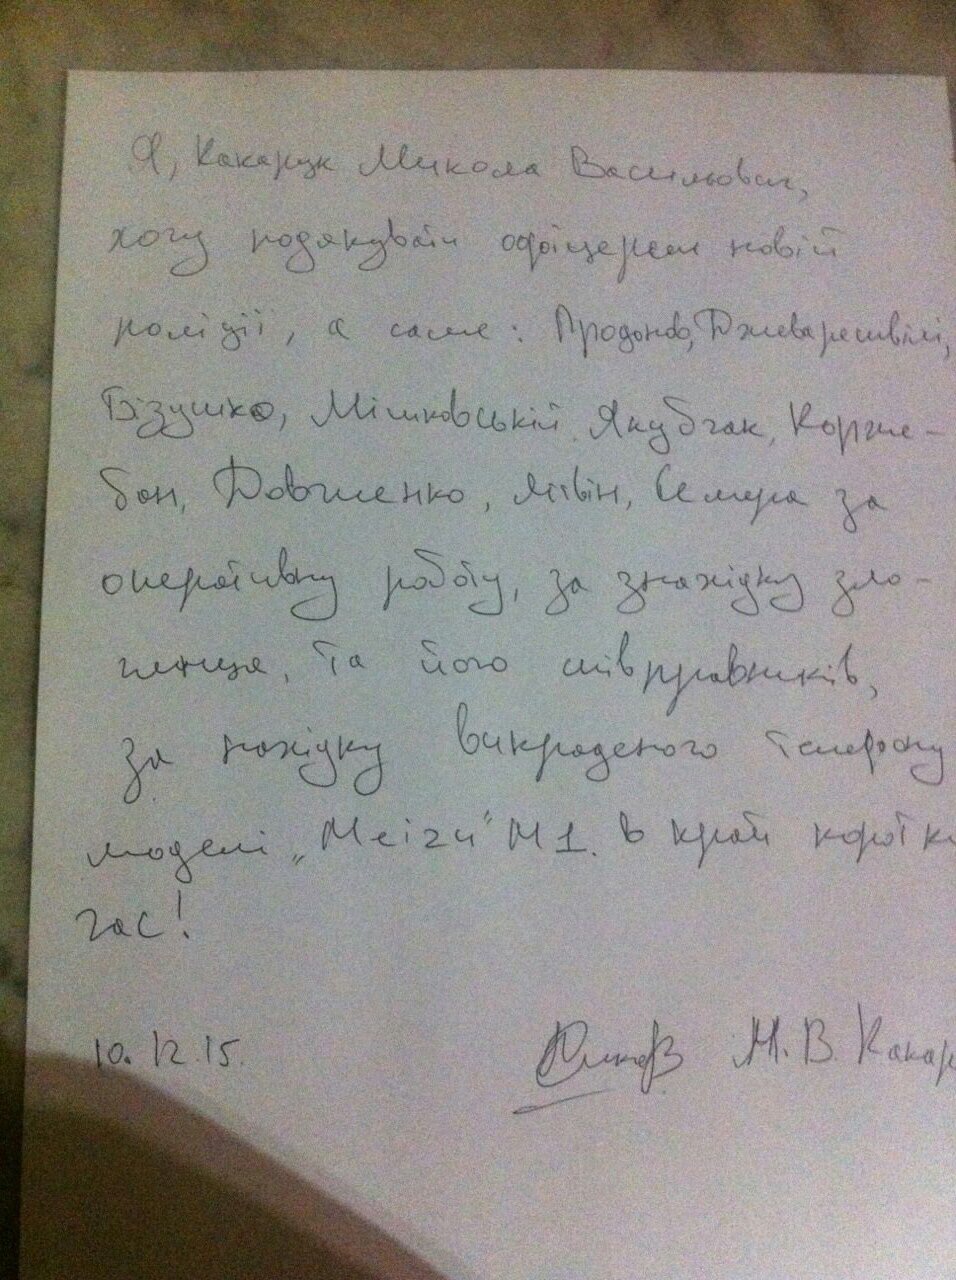 Я, Какарцк Микола Васильович,
хочу подякувати офіцерам новій
поліції, а саме: Продонов, Джеварешвілі,
Бізушко, Мішковській, Якубчак, Корже-
бон, Довженко, Лівін, Семура за
оперативну работу, за знахідку зло-
чинця, та його співправників,
за нахідку викраденого телефону
моделі „Meizu" M1. в край коротки
час!
10.12.15. М. В. Какар